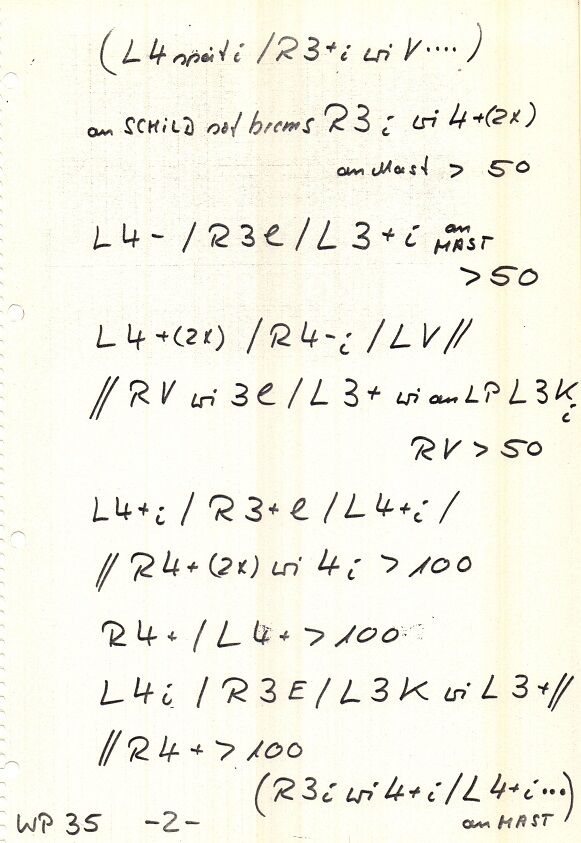 (L4 spät i / R3+i wi V ....)
an SCHILD not brems R3i wi 4+(2x)
an Mast > 50
L4- / R3e / L3+i an MAST
> 50
L4+(2x) / R4-i / LV //
// RV wi 3e / L3+ wi an LP L3Ki
RV > 50
L4+i / R3+e / L4+i /
// R4+(2x) wi 4i > 100
R4+ / L4+ > 100
L4i / R3E / L3K wi L3+ //
// R4+ > 100
(R3i wi 4+i / L4+i ...)
an MAST
WP 35 -2-